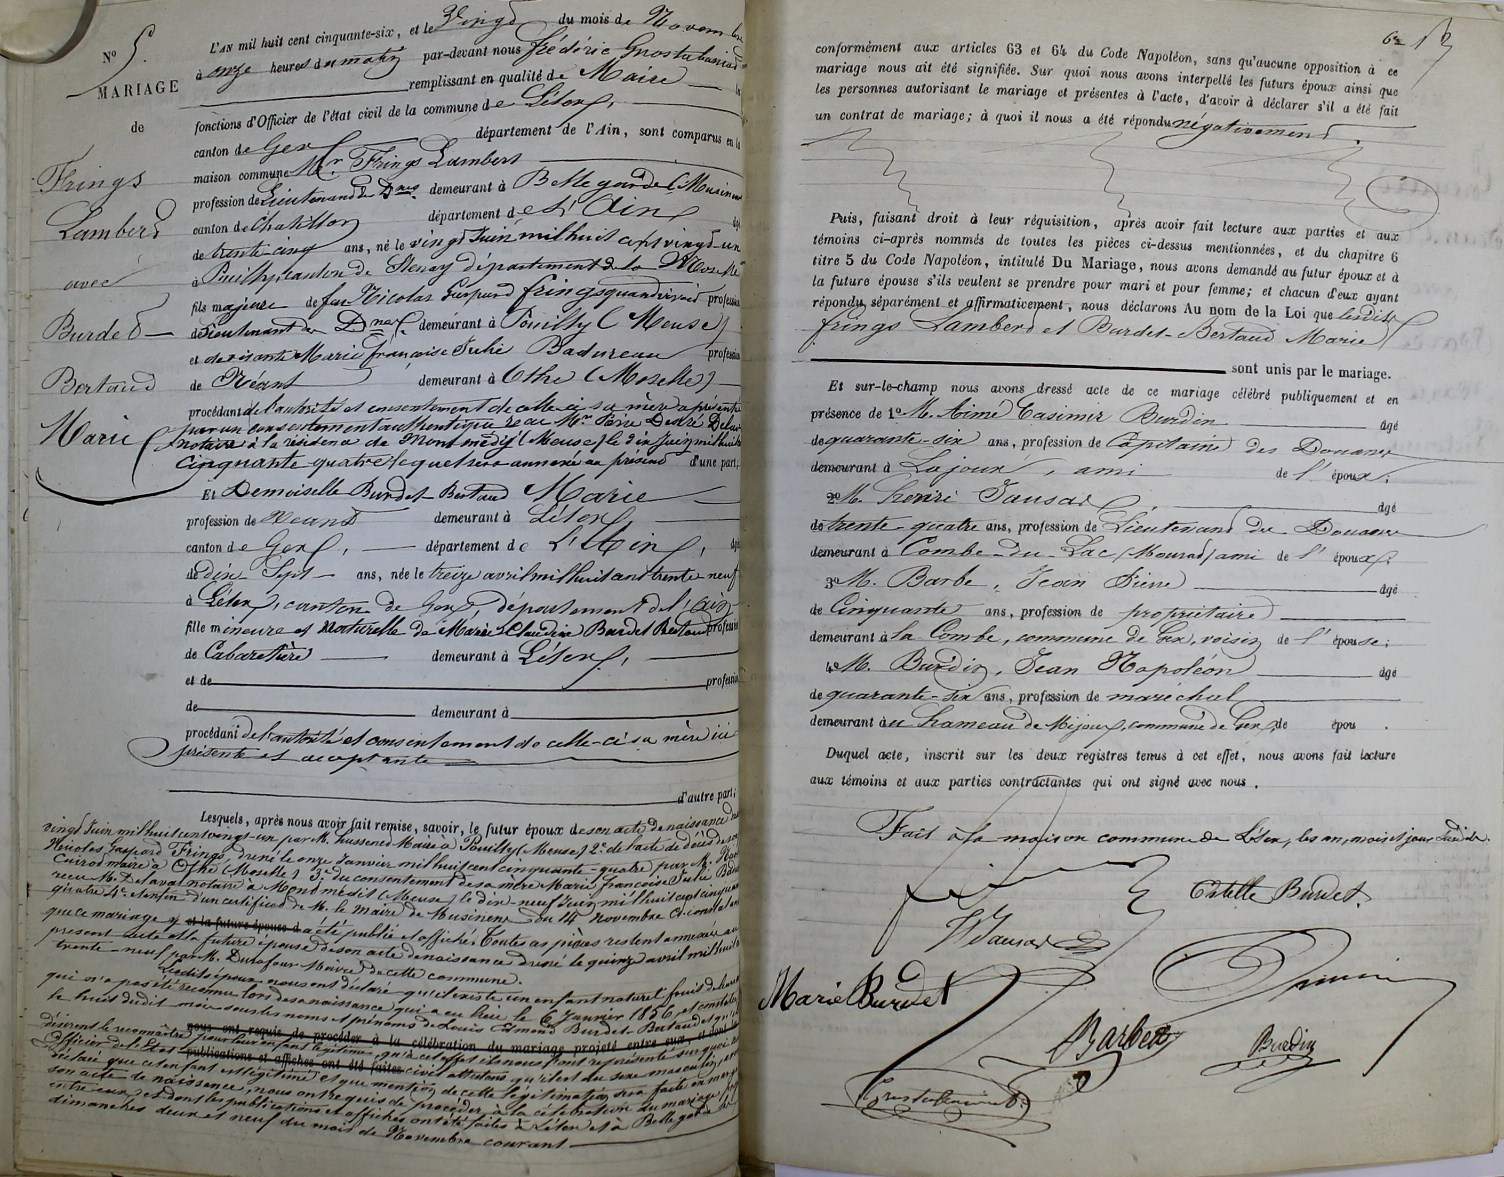 N° 5.
MARIAGE
de
Frings
Lambert
avec
Burdet
Bertaud
Marie
L'AN mil huit cent cinquante-six, et le Vingt du mois de Novembre
à onze heures du matin par-devant nous Frédéric
remplissant en qualité de Maire
fonctions d'Officier de l'état civil de la commune de Lélex,
canton de Gex département de l'Ain, sont comparus en la
maison commune Mr. Frings Lambert
profession de Lieutenant de Dnes demeurant à Bellegarde (Musinens
canton de Chatillon département de L'Ain âgé
de trente cinq ans, né le vingt Juin mil huit cent vingt-un
à Pouilly, canton de Stenay département de la Moselle
fils majeur de feu Nicolas Gaspard Frings quand vivait profession
de Lieutenant de Dnes demeurant à Pouilly (Meuse)
et de vivante Marie françoise Julie Badureau profession
de Néant demeurant à Othe (Moselle)
procédant de l'autorité et consentement de celle-ci sa mère
par un consentement authentique
notaire à la résidence de Montmédy (Meuse) le dix Juin mil huit
cinquante quatre lequel sera annexé au présent d'une part,
Et Demoiselle Burdet-Bertaud Marie
profession de Néant demeurant à Lélex
canton de Gex, département de L'Ain, âgé
de dix Sept ans, née le treize avril mil huit cent trente neuf
à Lélex, canton de Gex, département de l'Ain
fille mineure et Naturelle de Marie Claudine Burdet Bertaud profession
de Cabaretière demeurant à Lélex,
et de profession
de demeurant à
procédant de l'autorité et consentement de celle-ci sa mère ici
présente et acceptante
d'autre part;
Lesquels, après nous avoir fait remise, savoir, le futur époux de son acte de naissance
vingt Juin mil huit cent vingt-un par M. hussenet Maire à Pouilly (Meuse) 2° de l'acte de décès de
Nicolas Gaspard Frings, dressé le onze Janvier mil huit cent cinquante-quatre par M.
maire à Othe (Moselle) 3° du consentement de sa mère Marie françoise Julie
reçu M. Delaval notaire à Montmédit (Meuse) le dix neuf Juin mil huit cent cinquante
quatre 4° enfin d'un certificat de M. le Maire de Musinens du 14 Novembre Ct. constatant
que ce mariage y et la future épouse a été publié et affiché. Toutes ces pièces restent annexées au
présent acte et la future épouse de son acte de naissance dressé le quinze avril mil huit
trente-neuf par M. Durafour Maire de cette commune.
Lesdits époux nous ont déclaré qu'il existe un enfant naturel
qui n'a pas été reconnu lors de sa naissance qui a eu lieu le 6 Janvier 1856 et constatée
le huit dudit mois sous les noms et prénoms de Louis Edmond Burdet-Bertaud
nous ont requis de procéder à la célébration du mariage projeté entre eux, et dont les
désirent le reconnaître pour leur enfant légitime qu'à cet effet ils nous l'ont représenté sur quoi
publications et affiches ont été faites
Officier de l'Etat civil attestons qu'il est du sexe masculin,
déclaré que cet enfant est légitimé et que mention de cette légitimation sera faite en marge
son acte de naissance, nous ont requis de procéder à la célébration du mariage
entre eux, et dont les publications et affiches ont été faites à Lélex et à Bellegarde les
dimanches deux et neuf du mois de Novembre courant
conformément aux articles 63 et 64 du Code Napoléon, sans qu'aucune opposition à ce
mariage nous ait été signifiée. Sur quoi nous avons interpellé les futurs époux ainsi que
les personnes autorisant le mariage et présentes à l'acte, d'avoir à déclarer s'il a été fait
un contrat de mariage; à quoi il nous a été répondu négativement.
Puis, faisant droit à leur réquisition, après avoir fait lecture aux parties et aux
témoins ci-après nommés de toutes les pièces ci-dessus mentionnées, et du chapitre 6
titre 5 du Code Napoléon, intitulé Du Mariage, nous avons demandé au futur époux et à
la future épouse s'ils veulent se prendre pour mari et pour femme; et chacun d'eux ayant
répondu séparément et affirmativement, nous déclarons Au nom de la Loi que lesdits
frings Lambert et Burdet-Bertaud Marie
sont unis par le mariage.
Et sur-le-champ nous avons dressé acte de ce mariage célébré publiquement et en
présence de 1° M. Aimé Casimir Burdin âgé
de quarante-six ans, profession de Capitaine des Douanes
demeurant à Lajoux, ami de l'époux,
2° M. henri Jausas âgé
de trente-quatre ans, profession de Lieutenant de Douane
demeurant à Combe-du-Lac ami de l'époux;
3° M. Barbe, Jean Pierre âgé
de Cinquante ans, profession de propriétaire
demeurant à la Combe, commune de Gex, voisin de l'épouse;
4° M. Burdin, Jean Napoléon âgé
de quarante-six ans, profession de maréchal
demeurant au hameau de Mijoux, commune de Gex, de épou .
Duquel acte, inscrit sur les deux registres tenus à cet effet, nous avons fait lecture
aux témoins et aux parties contractantes qui ont signé avec nous.
Fait à la maison commune de Lélex, les an, mois et jour susdits.
Estelle Burdet.
Marie Burdet
Burdin